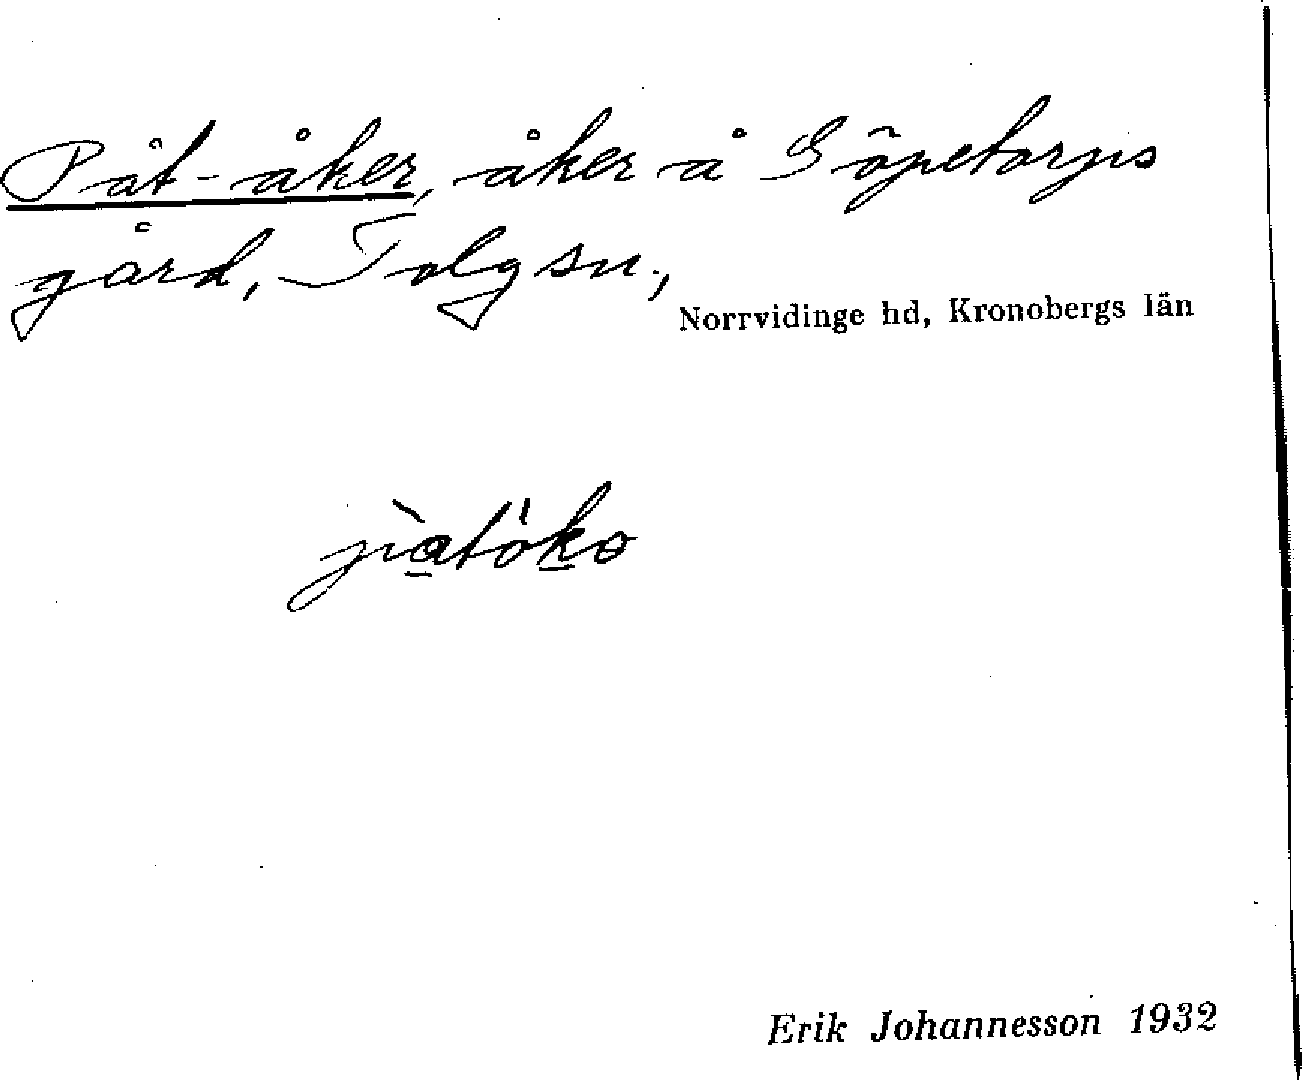 Påt-åker, åker å Göpetorps
gård, Tolg sn.,
Norrvidinge hd, Kronobergs län
Erik Johannesson 1932